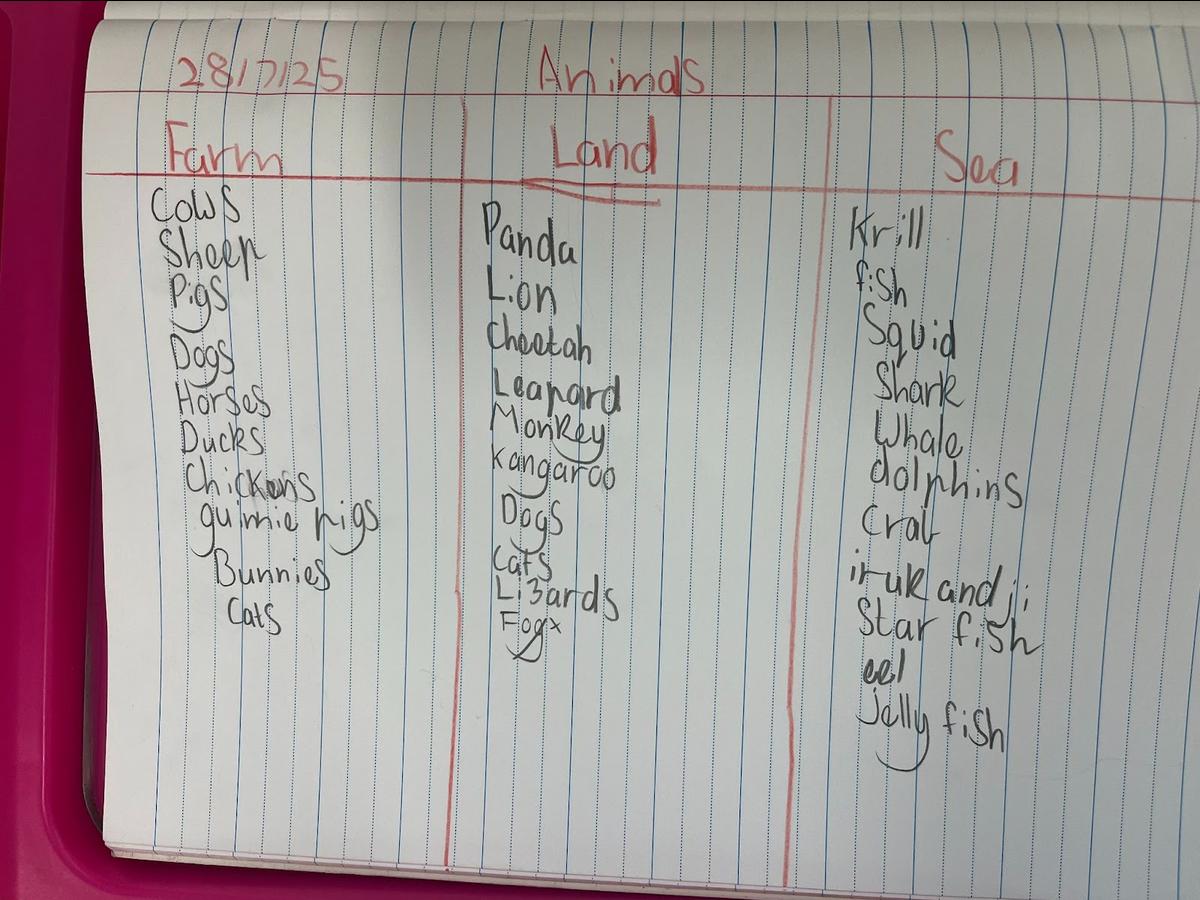 28/7/25 Animals
Farm
Cows
Sheep
Pigs
Dogs
Horses
Ducks
Chickens
guinnie pigs
Bunnies
Cats
Land
Panda
Lion
Cheetah
Leapard
Monkey
Kangaroo
Dogs
Cats
Lizards
Fogx
Sea
Krill
fish
Squid
Shark
Whale
dolphins
Crab
irukandji
Star fish
eel
jelly fish